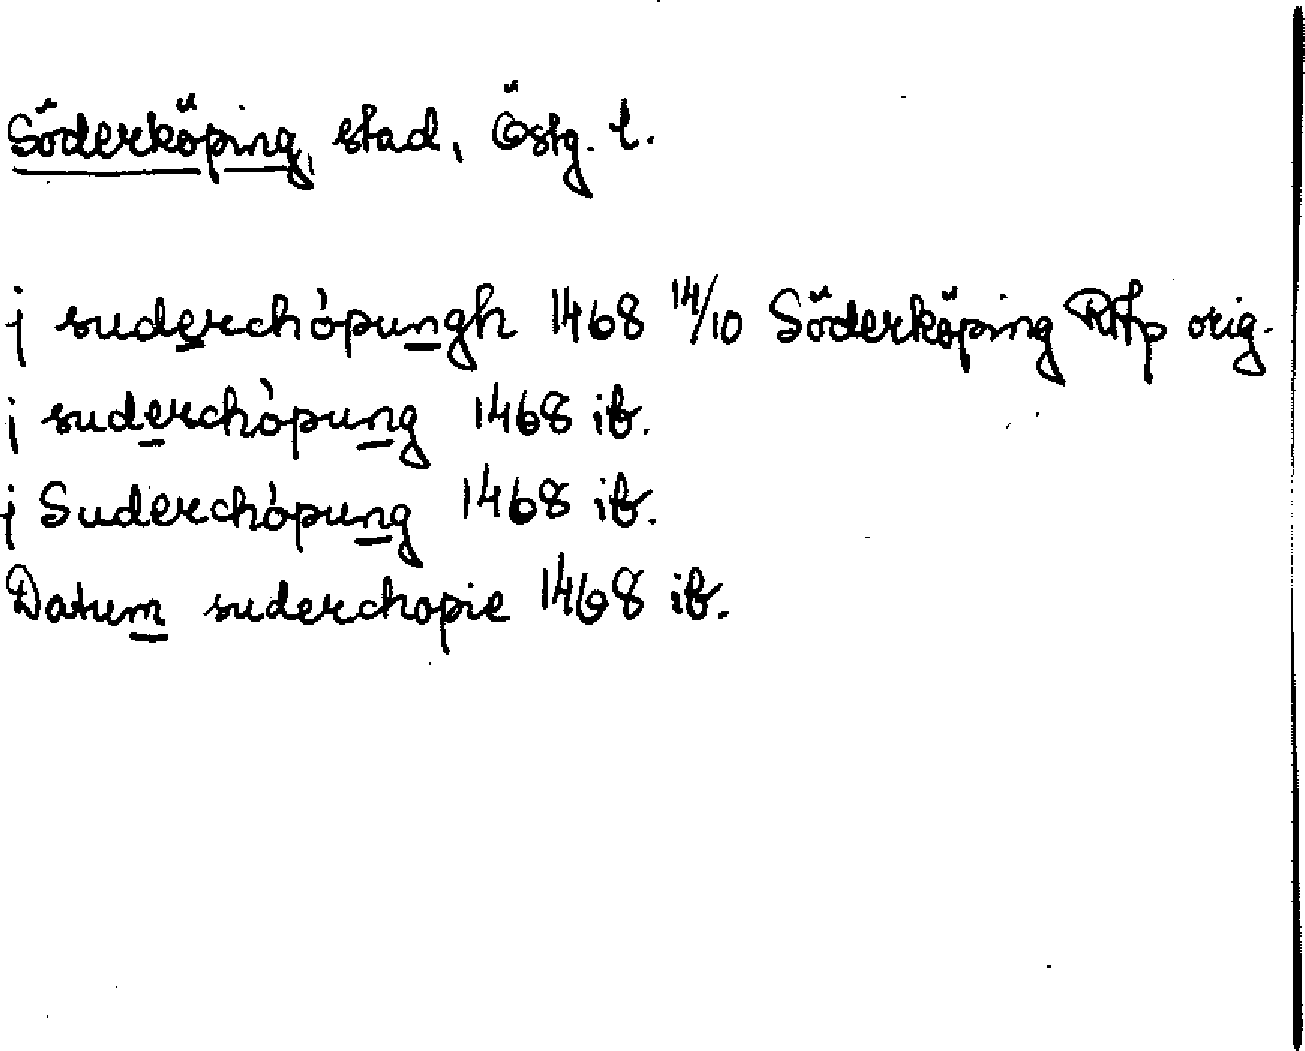 Söderköping, stad, Östg. l.
j suderchòpungh 1468 14/10 Söderköping RAp orig.
j suderchòpung 1468 ib.
j Suderchòpung 1468 ib.
Datum suderchopie 1468 ib.